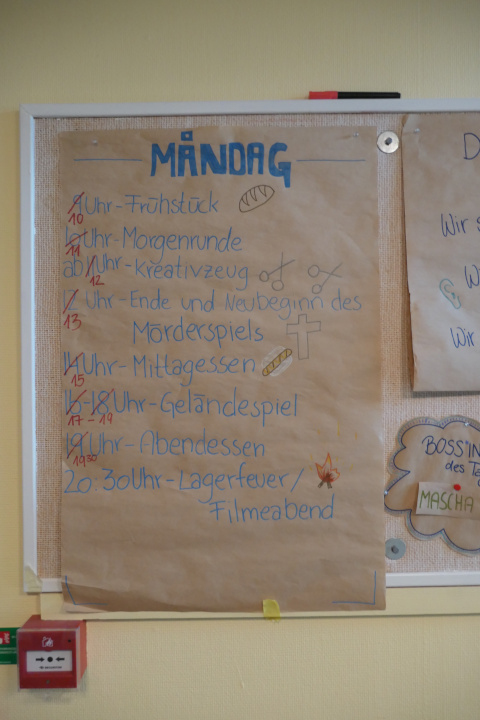 MÅNDAG
9 Uhr - Frühstück
10
10 Uhr - Morgenrunde
11
ab 11 Uhr - Kreativzeug
12
12 Uhr - Ende und Neubeginn des
13
Mörderspiels
14 Uhr - Mittagessen
15
16-18 Uhr - Geländespiel
17 - 19
19 Uhr - Abendessen
19 30
20:30 Uhr - Lagerfeuer /
Filmeabend
D
Wir s
Wi
Wir
BOSS'IN
des Ta
MASCHA